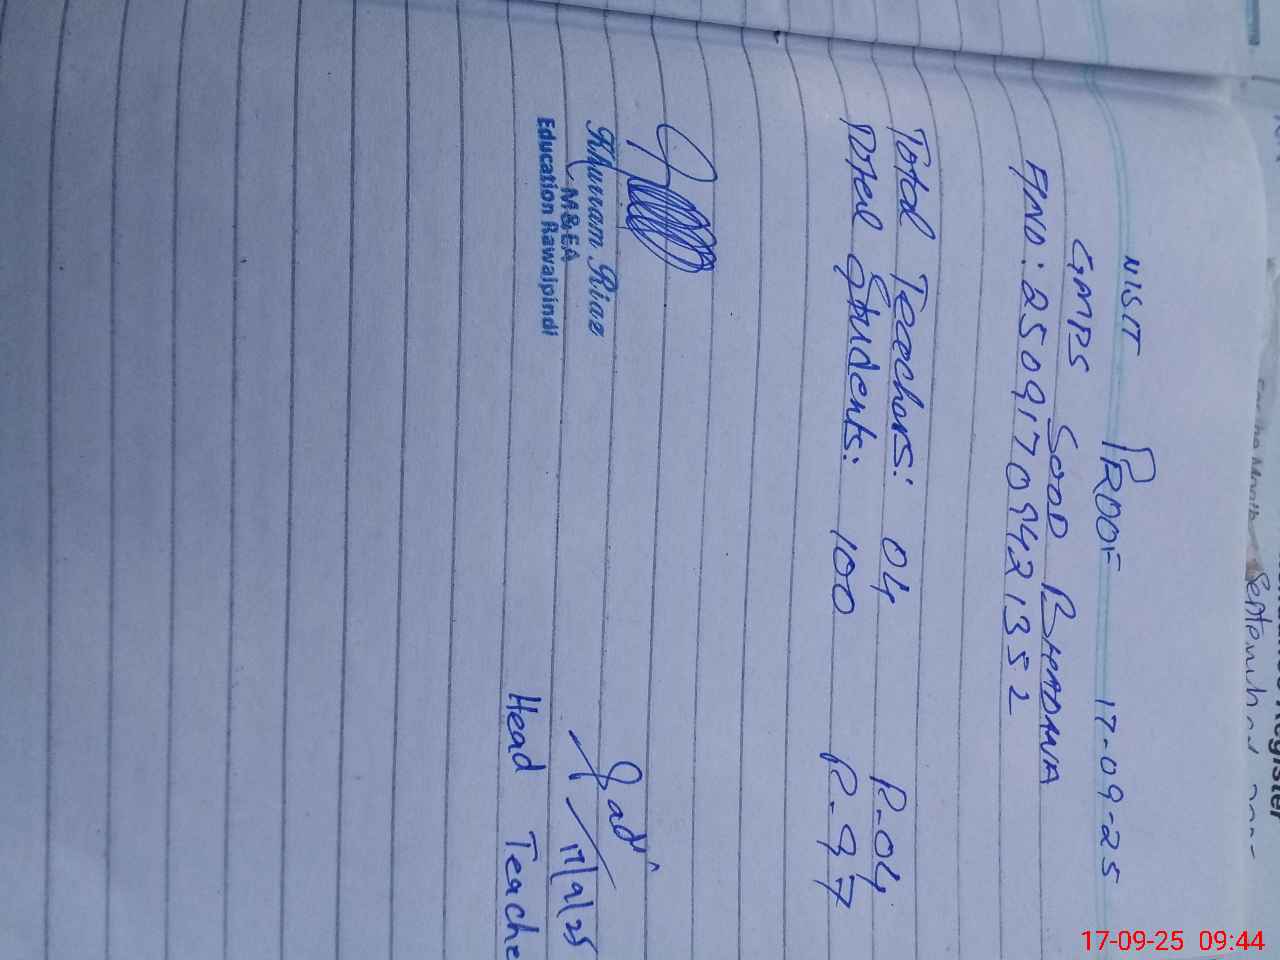 VISIT PROOF 17-09-25
GMPS SOOD BHADANA
AND: 2509170942 1352
Total Teachers: 04 P-04
Total Students: 100 P-97
Khurram Riaz
M&EA
Education Rawalpindi
17/9/25
Head Teache
September
17-09-25 09:44